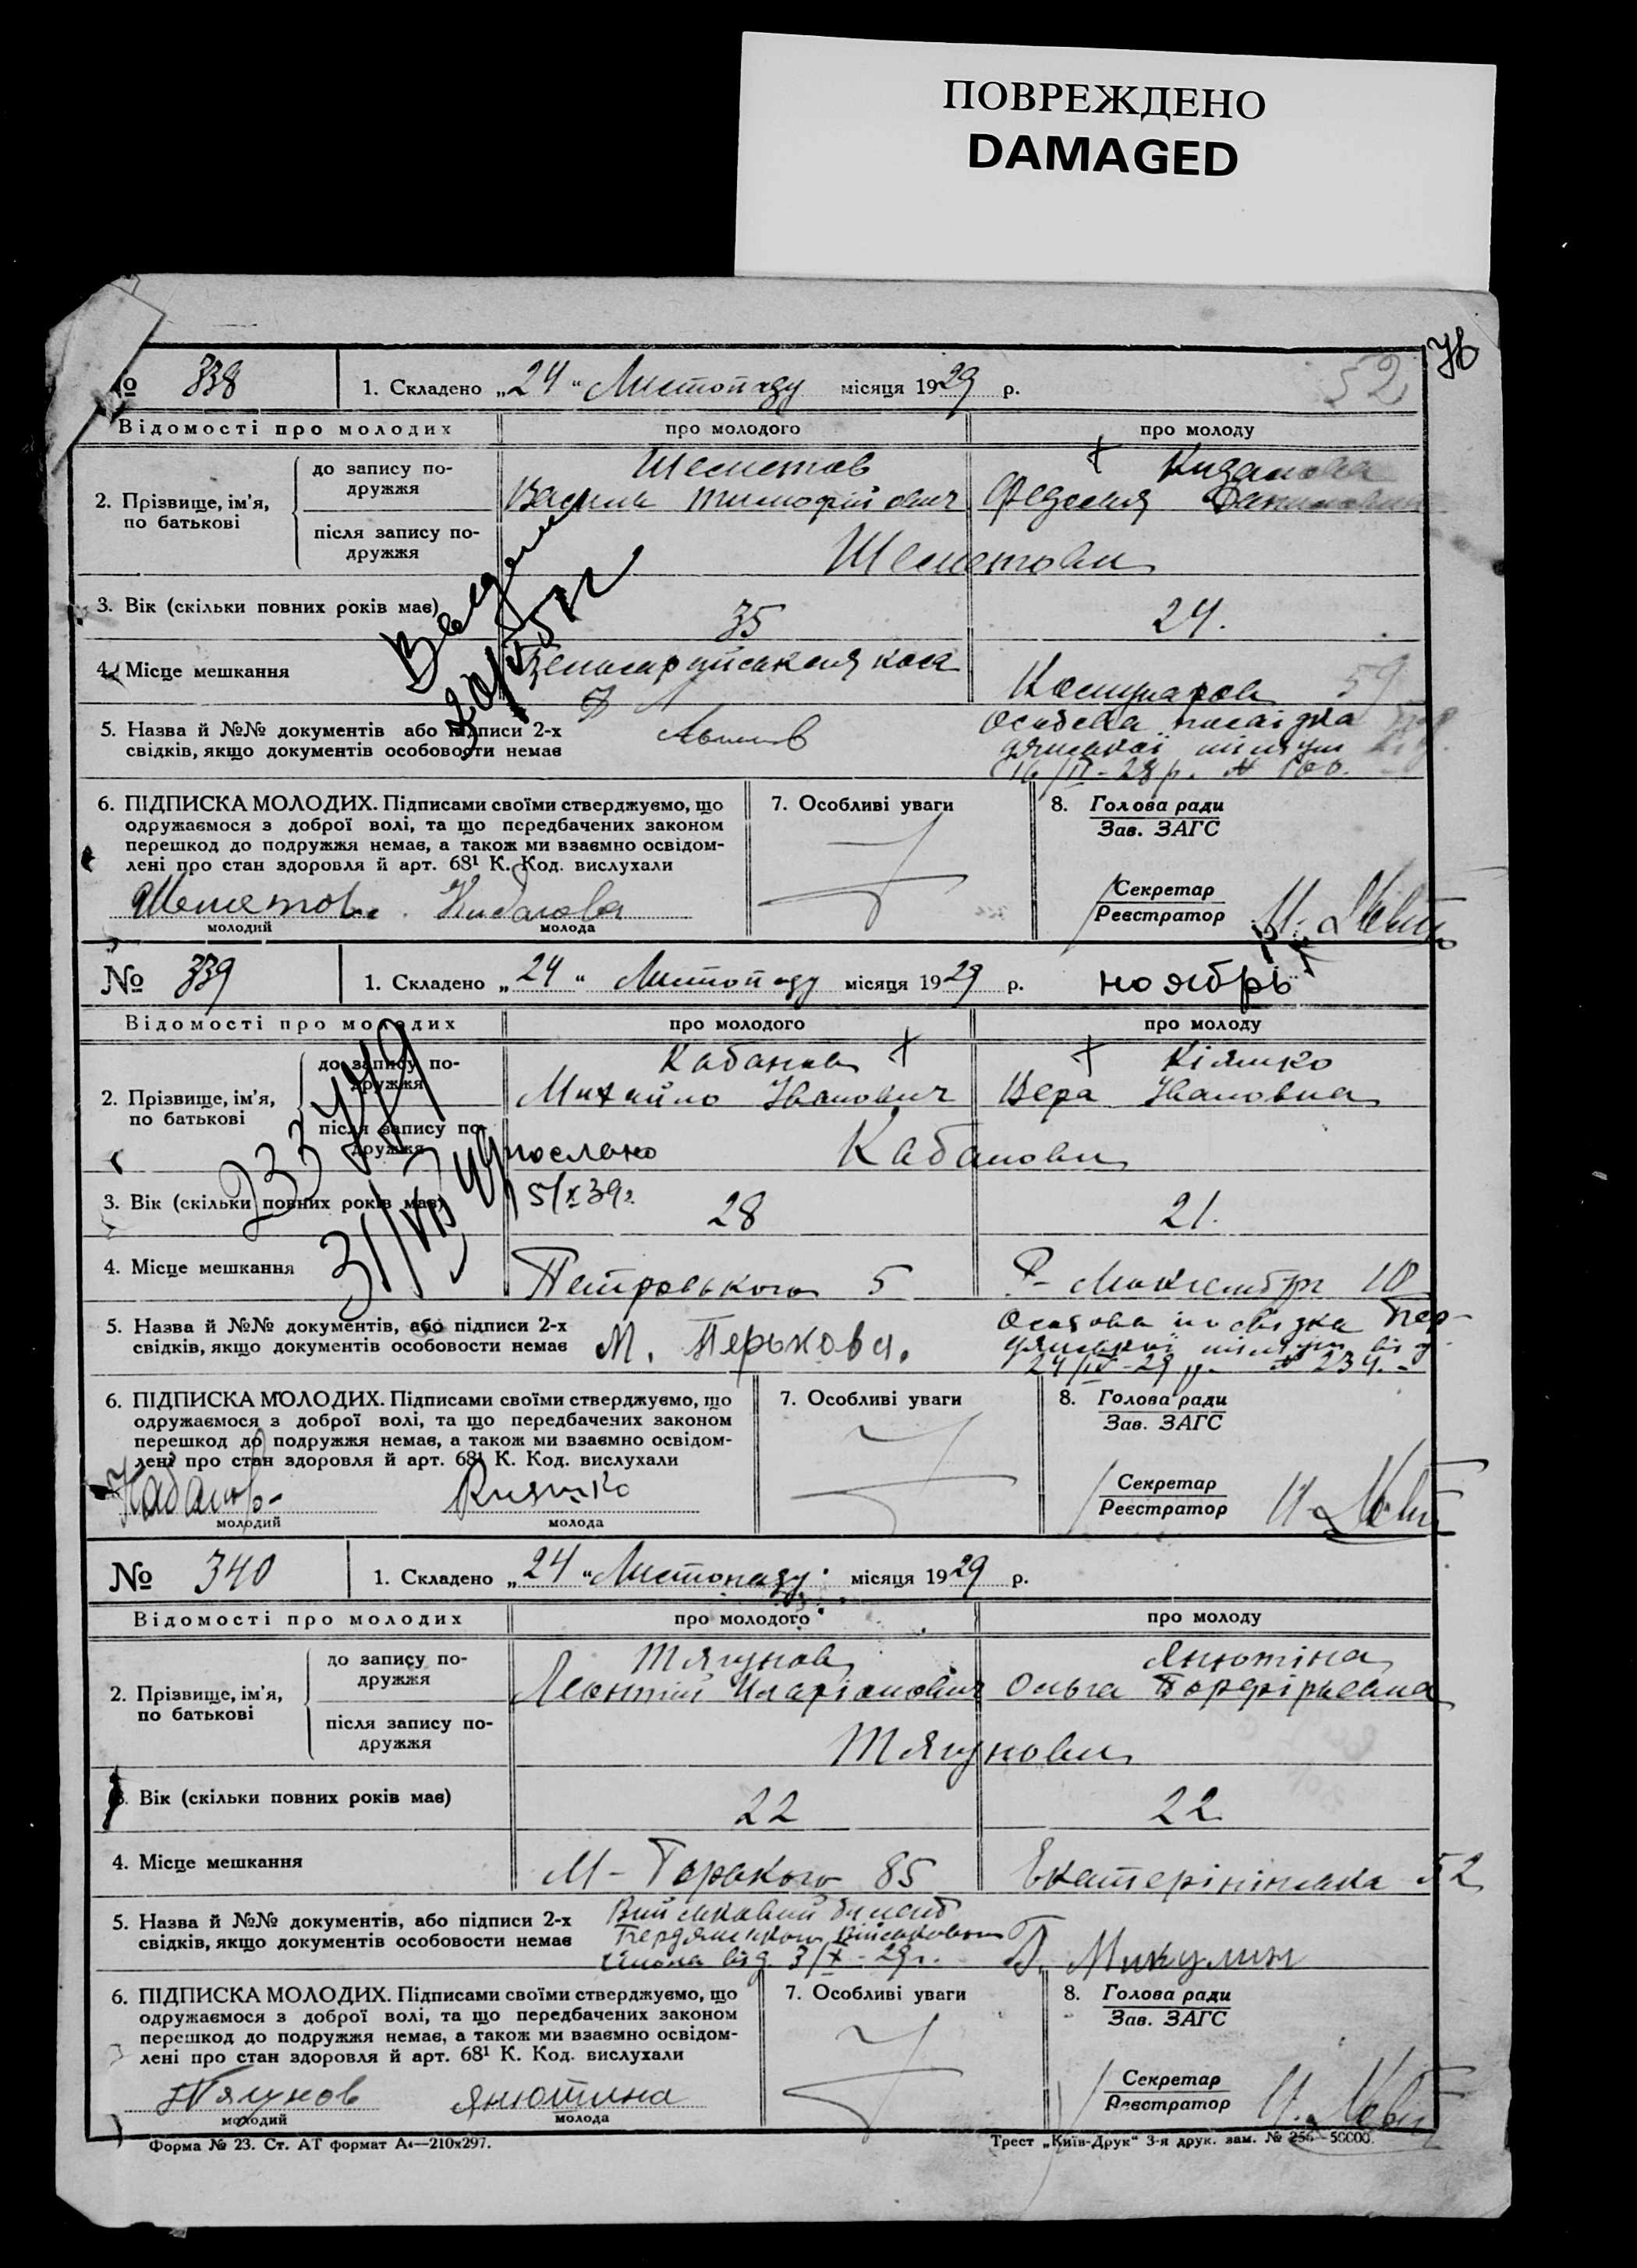 ПОВРЕЖДЕНО
DAMAGED
№ 338
1. Складено „24“ Листопаду місяця 1929 р.
52
Відомості про молодих
про молодого
про молоду
2. Прізвище, ім'я, по батькові
до запису по-
дружжя
Шеметов
Василь Тимофійович
Федосия
після запису по-
дружжя
Шеметови
3. Вік (скільки повних років має)
35
24.
4. Місце мешкання
коса
5. Назва й №№ документів або підписи 2-х
свідків, якщо документів особовости немає
Особова посвідка
16/II-28 р. № 100.
6. ПІДПИСКА МОЛОДИХ. Підписами своїми стверджуємо, що
одружаємося з доброї волі, та що передбачених законом
перешкод до подружжя немає, а також ми взаємно освідом-
лені про стан здоровля й арт. 68¹ К. Код. вислухали
молодий
молода
7. Особливі уваги
8. Голова ради
Зав. ЗАГС
Секретар
Реєстратор
№ 339
1. Складено „24“ Листопаду місяця 1929 р.
ноябрь
Відомості про молодих
про молодого
про молоду
2. Прізвище, ім'я,
по батькові
до запису по-
дружжя
Кабанов
Михайло Іванович
Кіяшко
Вера Івановна
після запису по-
дружжя
послано
Кабанови
3. Вік (скільки повних років має)
5/X 39г.
28
21.
4. Місце мешкання
Петровського 5
Р-Люксембург 10
5. Назва й №№ документів, або підписи 2-х
свідків, якщо документів особовости немає
М. Перькова.
Особова посвідка Бер-
дянської міліції від
24/IV-29 р. № 234.
6. ПІДПИСКА МОЛОДИХ. Підписами своїми стверджуємо, що
одружаємося з доброї волі, та що передбачених законом
перешкод до подружжя немає, а також ми взаємно освідом-
лені про стан здоровля й арт. 68¹ К. Код. вислухали
Кабанов
Кияшко
молодий
молода
7. Особливі уваги
8. Голова ради
Зав. ЗАГС
Секретар
Реєстратор
№ 340
1. Складено „24“ Листопаду місяця 1929 р.
Відомості про молодих
про молодого
про молоду
2. Прізвище, ім'я,
по батькові
до запису по-
дружжя
Тягунов
Леонтій Іларіонович
Янютіна
Ольга Порфірьевна
після запису по-
дружжя
Тягунови
3. Вік (скільки повних років має)
22
22
4. Місце мешкання
М-Горького 85
Екатерінінська 52
5. Назва й №№ документів, або підписи 2-х
свідків, якщо документів особовости немає
Військовий білет
Бердянського військового
стола від 3/X-29 г.
Г. Микулин
6. ПІДПИСКА МОЛОДИХ. Підписами своїми стверджуємо, що
одружаємося з доброї волі, та що передбачених законом
перешкод до подружжя немає, а також ми взаємно освідом-
лені про стан здоровля й арт. 68¹ К. Код. вислухали
Тягунов
Янютина
молодий
молода
7. Особливі уваги
8. Голова ради
Зав. ЗАГС
Секретар
Реєстратор
Форма № 23. Ст. АТ формат А₄—210х297.
Трест „Київ-Друк“ 3-я друк. зам. № 256—50000.